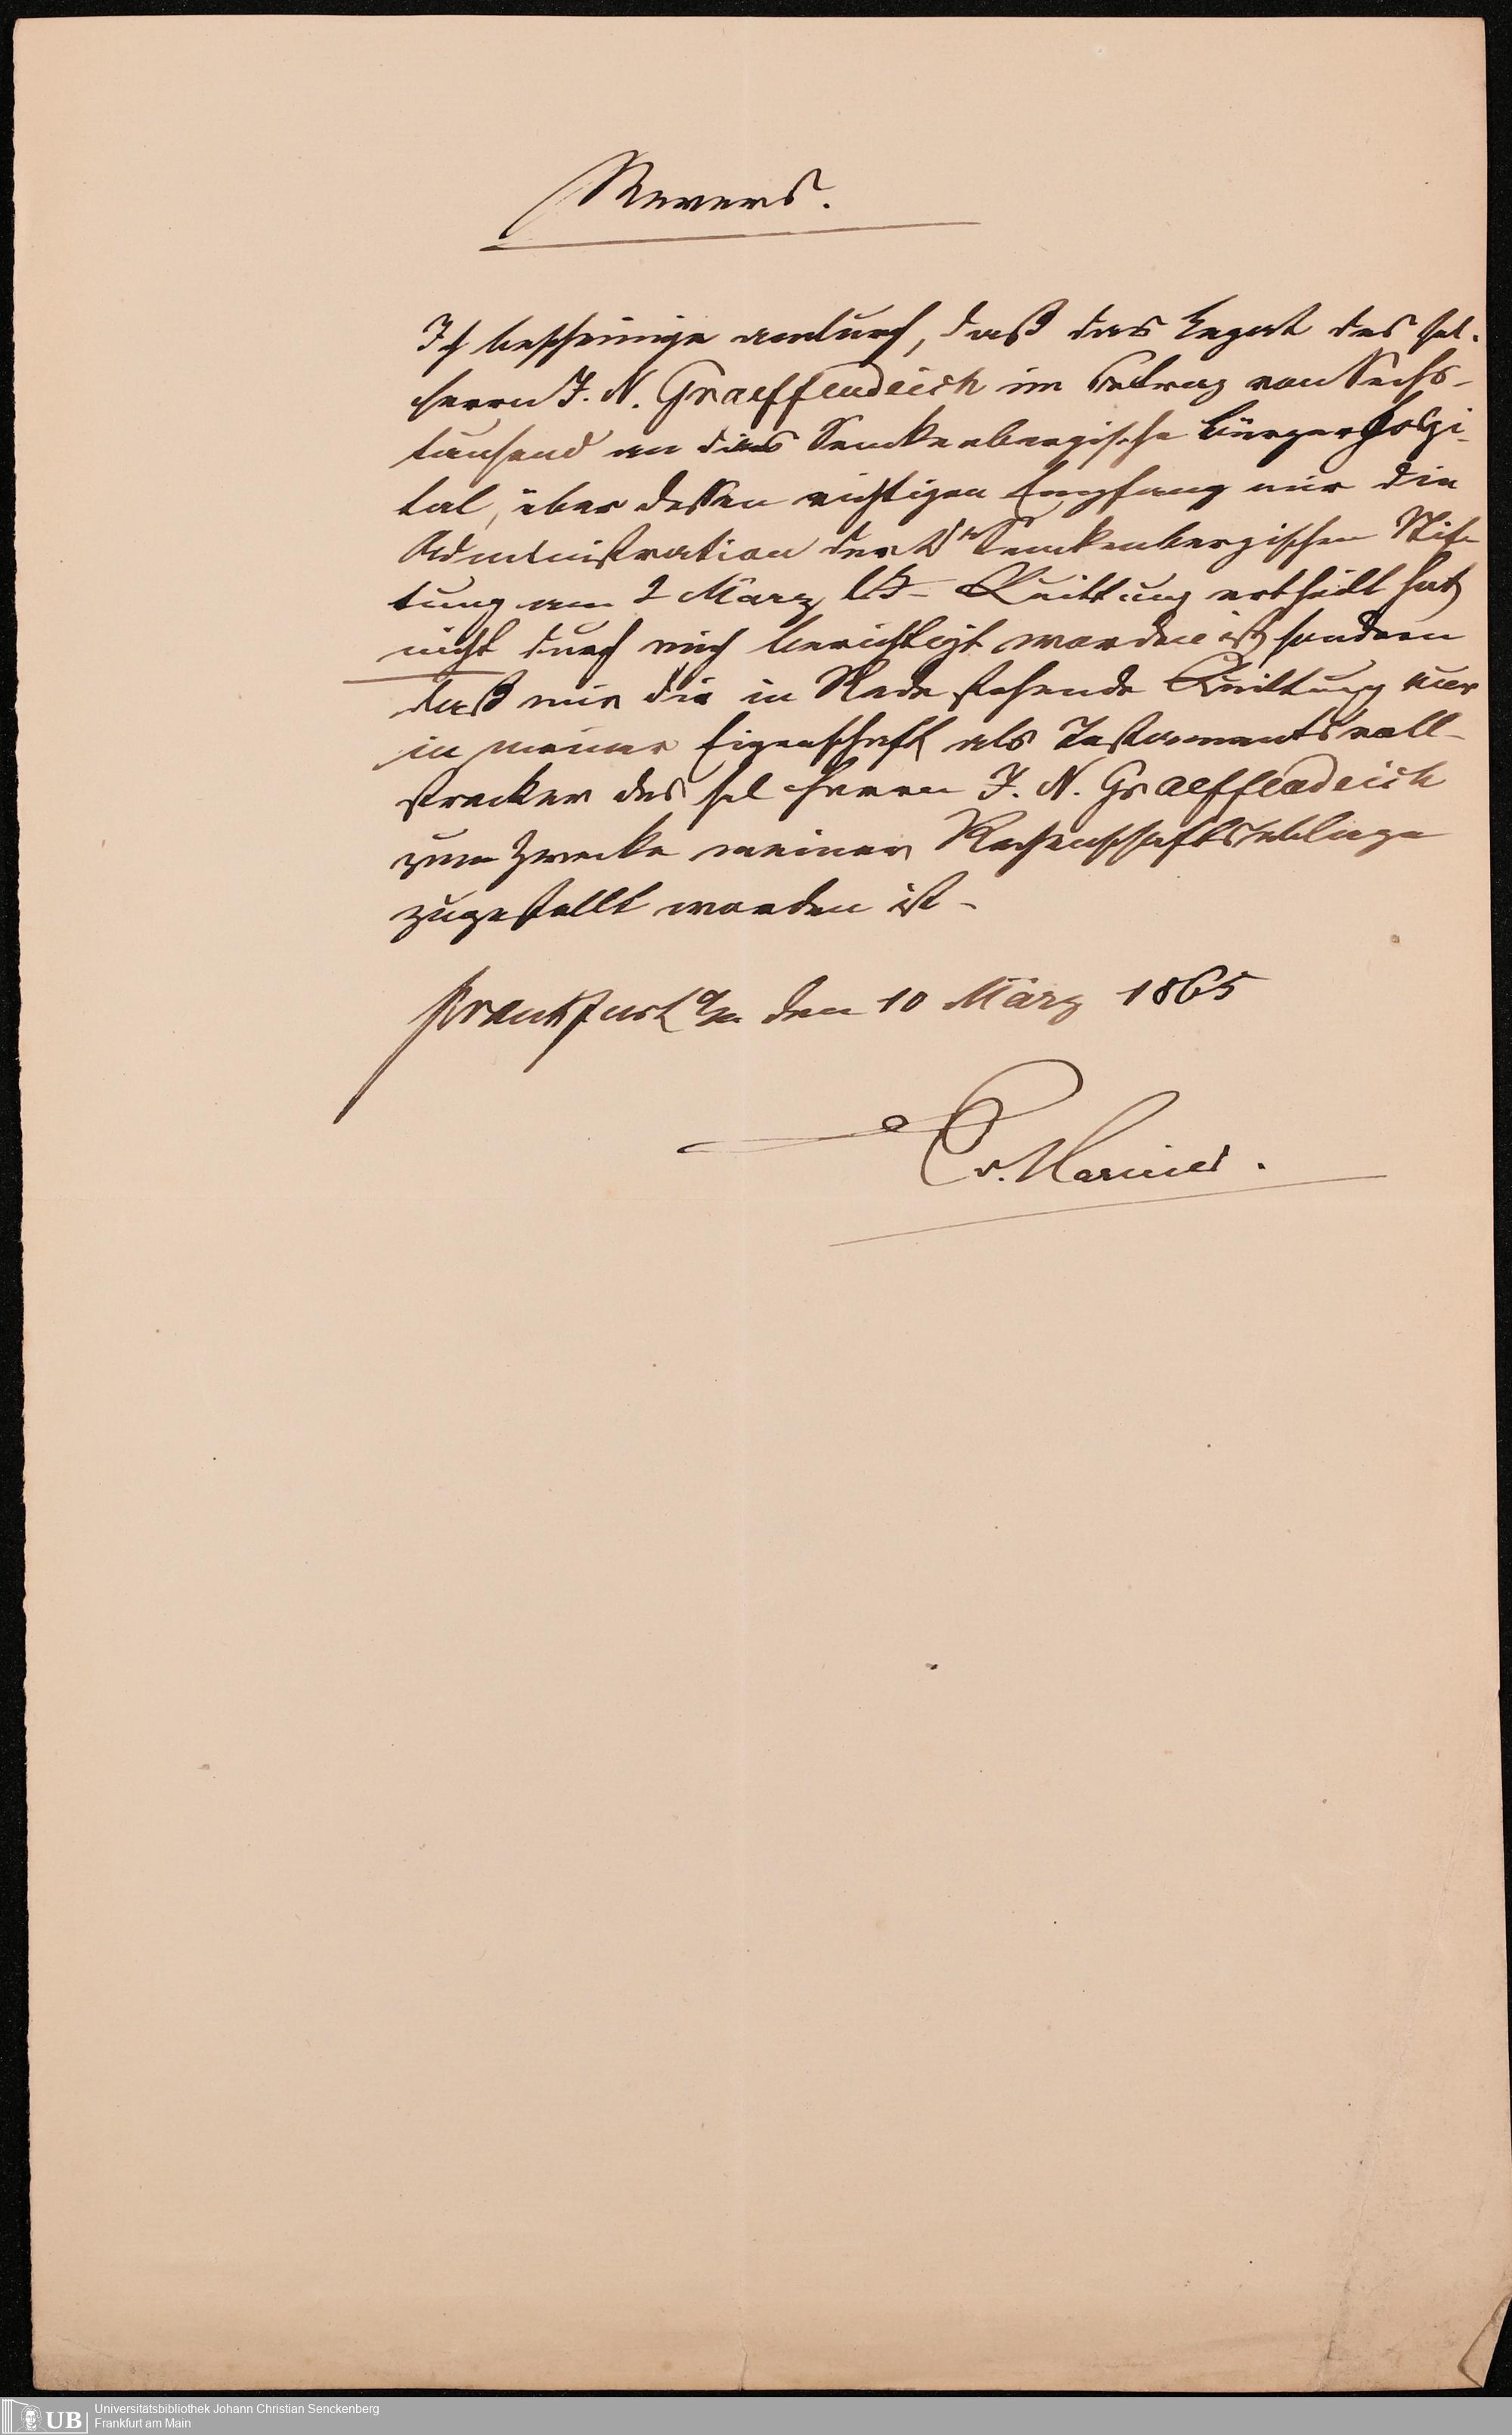 Revers.
Ich bescheinige andurch, daß das Legat des sel.
Herrn J. N. Graeffendeich im Betrag von Sechs-
tausend an das Senckenbergische Bürgerhospi-
tal, über dessen richtigen Empfang mir die
Administration der Dr Senckenbergischen Stif-
tung am 2 März Quittung ertheilt hat,
nicht durch mich berichtigt worden ist, sondern
daß mir die in Rede stehende Quittung nur
in meiner Eigenschaft als Testamentsvoll-
strecker des sel Herrn J. N. Graeffendeich
zum Zwecke meiner Rechenschaftsablage
zugestellt worden ist -
Frankfurt a/m den 10 März 1865
Universitätsbibliothek Johann Christian Senckenberg
Frankfurt am Main
UB